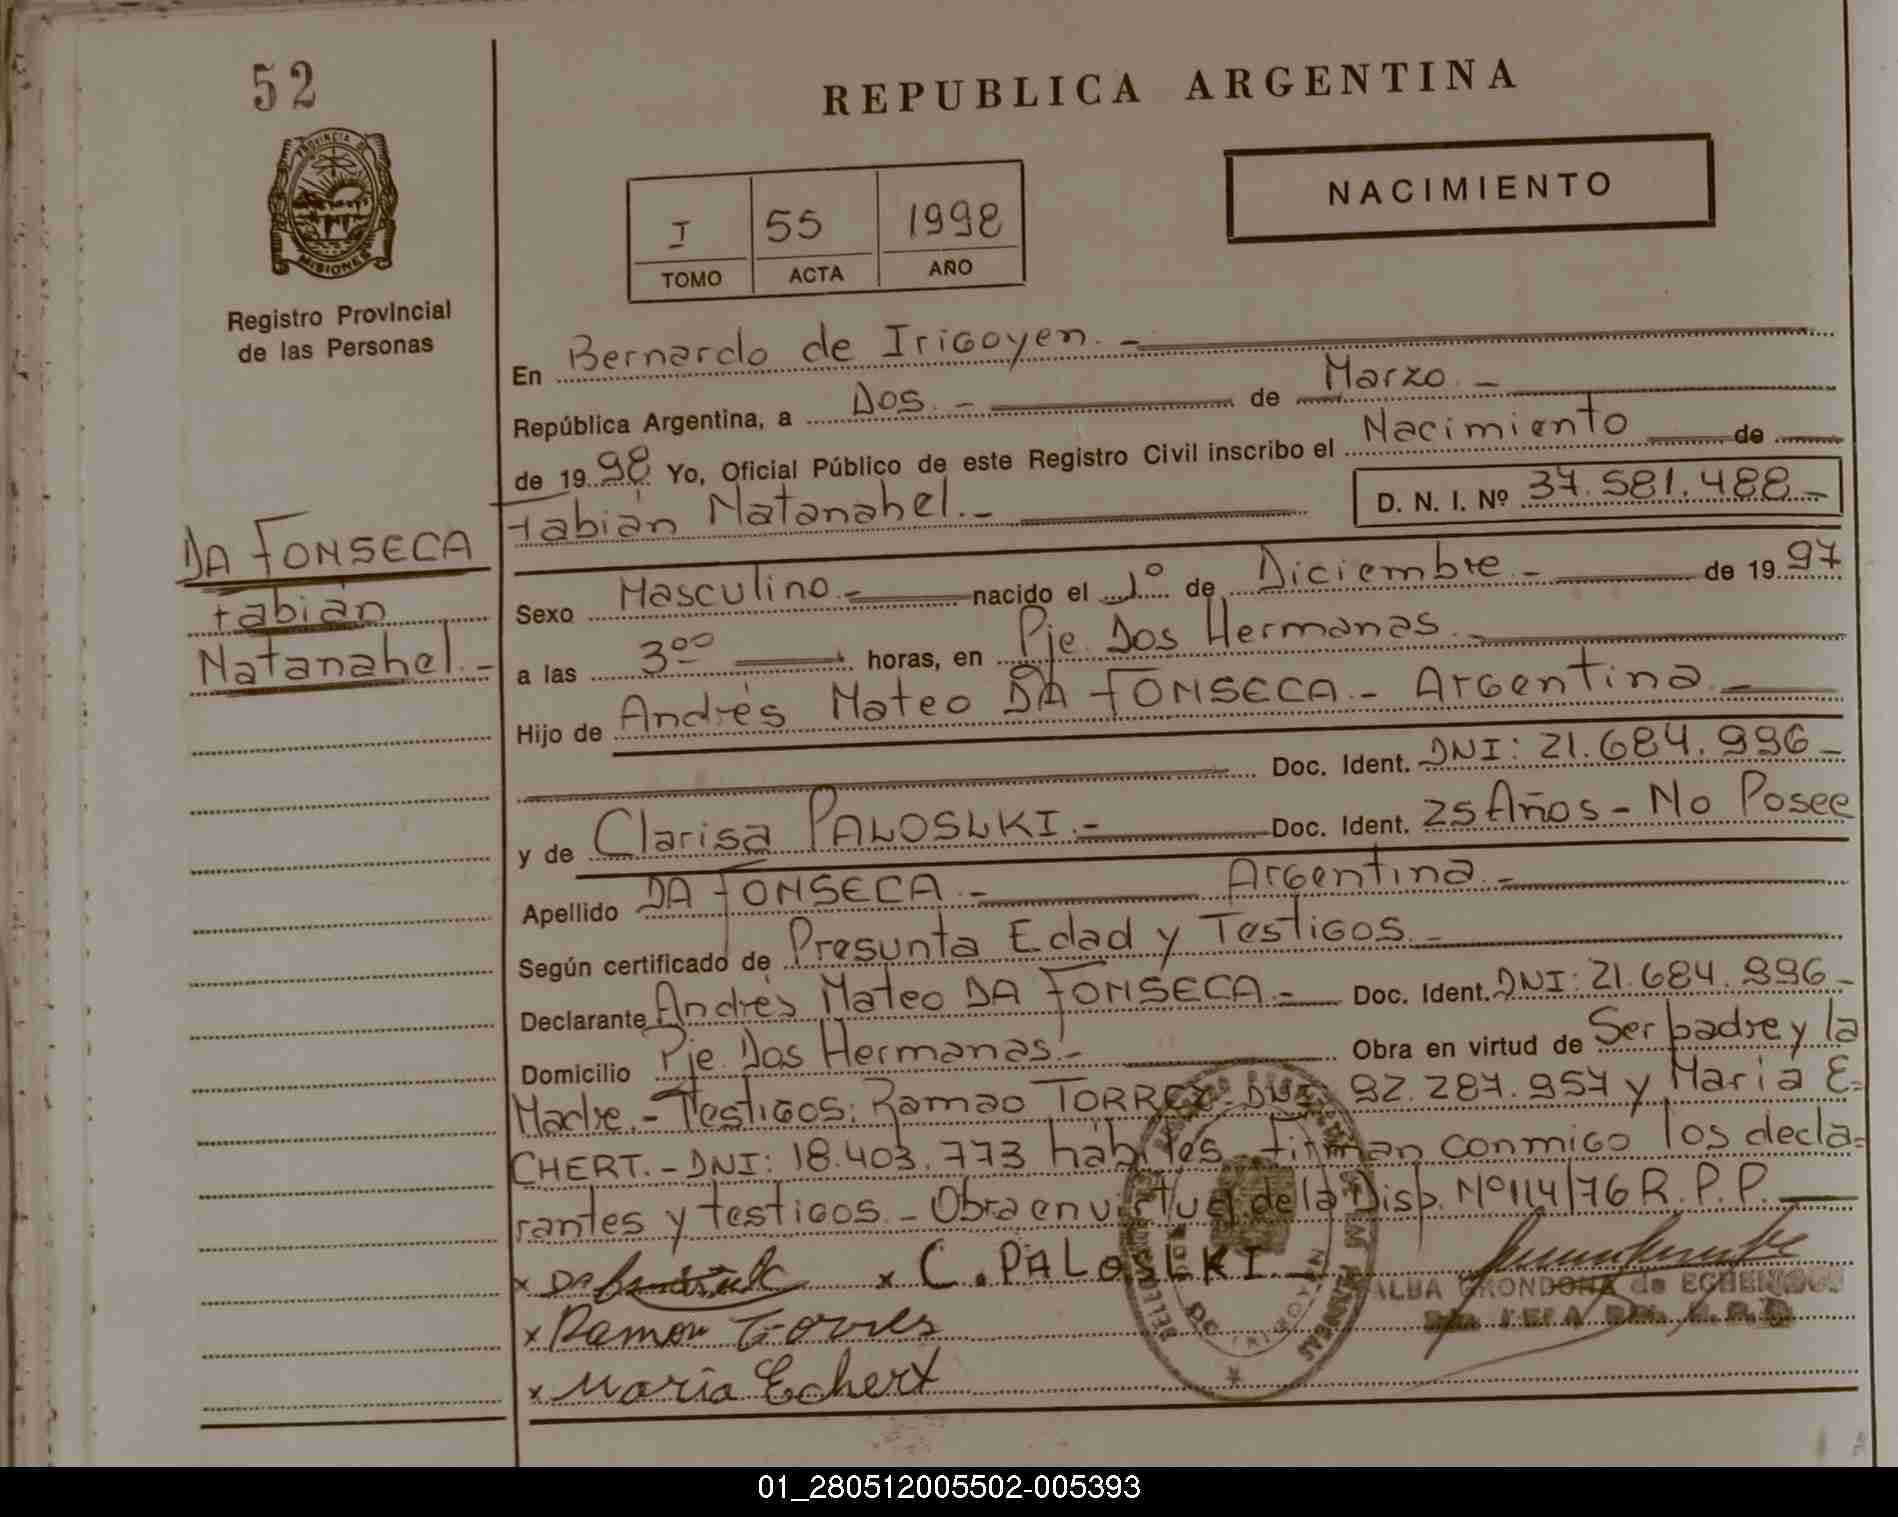 52
REPUBLICA ARGENTINA
PROVINCIA DE
MISIONES
Registro Provincial
de las Personas
NACIMIENTO
I 55 1998
TOMO ACTA AÑO
En Bernardo de Irigoyen.-
República Argentina, a Dos.- de Marzo.-
de 1998 Yo, Oficial Público de este Registro Civil inscribo el Nacimiento de
Fabián Natanahel.- D. N. I. Nº 37.581.488-
DA FONSECA
Fabián
Natanahel.-
Sexo Masculino.- nacido el 1º de Diciembre.- de 1997
a las 3:00 horas, en Pje. Dos Hermanas.-
Hijo de Andrés Mateo DA FONSECA.- Argentina.-
Doc. Ident. DNI: 21.684.996-
y de Clarisa PALOSLKI.- Doc. Ident. 25 Años - No Posee
Apellido DA FONSECA.- Argentina.-
Según certificado de Presunta Edad y Testigos.-
Declarante Andrés Mateo DA FONSECA.- Doc. Ident. DNI: 21.684.996-
Domicilio Pje. Dos Hermanas.- Obra en virtud de Ser padre y la
Madre.- Testigos: Ramao TORREZ DNI: 92.287.957 y Maria E=
CHERT.- DNI: 18.403.773 hábiles firman conmigo los decla=
rantes y testigos.- Obra en virtud de la Disp. Nº 114/76 R.P.P.
x Da x C. PALOSLKI
ALBA GRONDONA de
x Ramon Torres
x Maria Echert
01_280512005502-005393